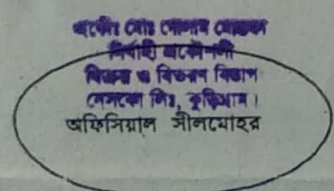 প্রকৌঃ মোঃ গোলাম মোস্তফা
নির্বাহী প্রকৌশলী
বিক্রয় ও বিতরণ বিভাগ
নেসকো লিঃ, কুড়িগ্রাম।
অফিসিয়াল সীলমোহর